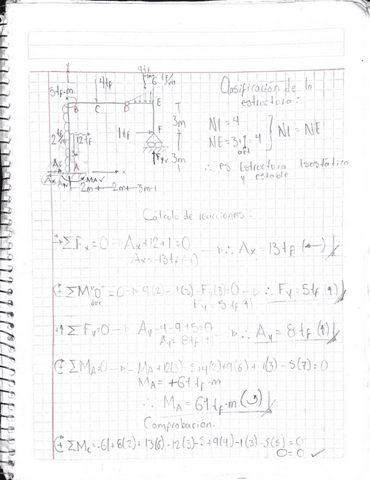 9tf
5tf·m
4tf
tf/m
B
C
D
E
3m
1tf
F
2 tf/m
12tf
3m
A
Ax
Ay
MA
Fy
2m 2m 3m
Clasificación de la
estructura:
NI = 4
NE = 3+1 = 4
NI = NE
∴ es Estructura Isostática
y estable
Calculo de reacciones.
ΣFx=0 Ax+12+1=0 ∴ Ax = 13tf (←)
Ax = -13tf
ΣM"D"=0 9(2) -1(3) -Fy(3)=0 ∴ Fy = 5tf (↑)
Fy = 5tf (↑)
ΣFy=0 Ay-4-9+5=0 ∴ Ay = 8tf (↑)
Ay = 8tf (↑)
ΣMA=0 - MA+12(3)-5+4(2)+9(6)+1(3)-5(7)=0
MA = +61tf·m
∴ MA = 61tf·m
Comprobación.
ΣMc=-61+8(2)+13(6)-12(3)-5+9(4)-1(3)-5(5)=0
0=0 ✓